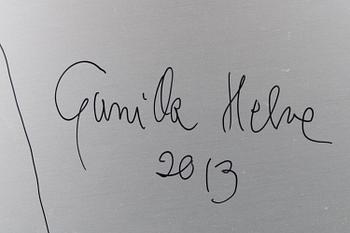 Gunilla Helne
2013